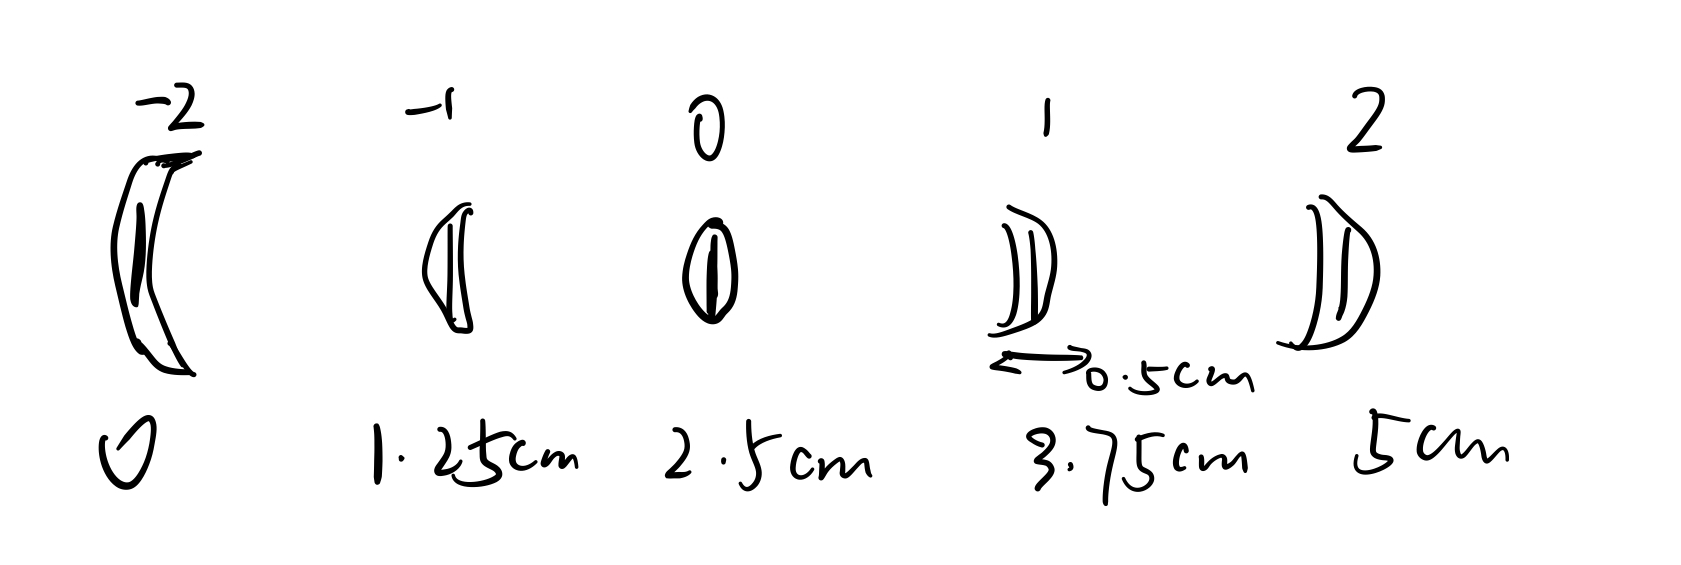 -2 -1 0 1 2
0.5cm
0 1.25cm 2.5cm 3.75cm 5cm